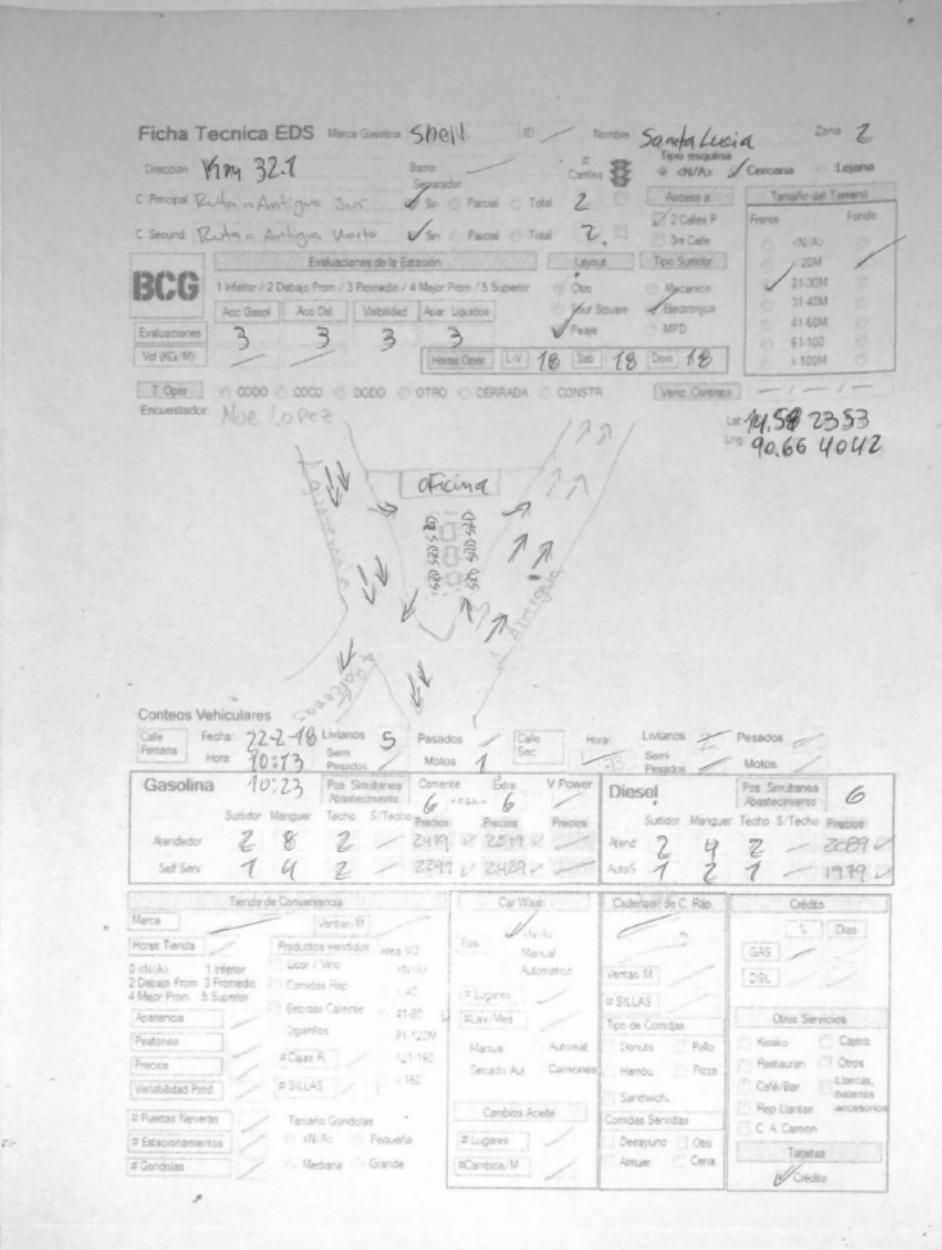 Ficha Tecnica EDS Marca Gasolina Shell ID Nombre Santa Lucia Zona 2
Direccion Km 32.1 Barrio # Carriles Tipo esquina <N/A> Cercana Lejana
Separador
C Principal Ruta a Antigua Sur Sin Parcial Total 2 Acceso a Tamaño del Terreno
2 Calles P Frente Fondo
C Secund. Ruta a Antigua Norte Sin Parcial Total 2 3ra Calle <N/A>
BCG Evaluaciones de la Estación Layout Tipo Surtidor < 20M
1 Inferior / 2 Debajo Prom / 3 Promedio / 4 Mejor Prom / 5 Superior Otro Mecanico 21-30M
Acc Gasol Acc Dsl Visibilidad Apar Liquidos Four Square Electronico 31-40M
Evaluaciones 3 3 3 3 Peaje MPD 41-60M
61-100
Vol (KG/M) Horas Oper L-V 18 Sab 18 Dom 18 > 100M
T. Oper CODO COCO DODO OTRO CERRADA CONSTR Venc. Contrato
Encuestador: Noe Lopez
Lat 14.58 2353
Lng 90.66 4042
oficina
Antigua
Conteos Vehiculares
Calle Primaria Fecha: 22-2-18 Livianos 5 Pesados Calle Sec Hora: Livianos Pesados
Hora: 10:13 Semi Pesados Motos 1 Semi Pesados Motos
Gasolina 10:23 Pos. Simultanea Abastecimiento Corriente 6 Extra 6 V Power Diesel Pos Simultanea Abastecimiento 6
Surtidor Manguer Techo S/Techo Precios Precios Precios Surtidor Manguer Techo S/Techo Precios
Atendedor 2 8 2 2419 2519 Atend 2 4 2 2089
Self Serv 1 4 2 2299 2429 AutoS 1 2 1 1979
Tienda de Conveniencia Car Wash Cadenas de C. Rap. Crédito
Marca Ventas. M <N/A> % Dias
Horas Tienda Productos vendidos Area M2 Tipo Manual GAS
0 <N/A> 1 Inferior Licor / Vino <N/A> Automatico Ventas M DSL
2 Debajo Prom 3 Promedio Comidas Ráp < 40
4 Mejor Prom 5 Superior Bebidas Caliente 41-80 # Lugares # SILLAS
Apariencia Cigarrillos 81-120M #Lav/Mes Tipo de Comidas Otros Servicios
Peatones # Cajas R. 121-180 Manual Automát Donuts Pollo Kiosko Cajero
Precios # SILLAS > 180 Secado Aut Camiones Hambu Pizza Restauran Otros
Variabilidad Prod Sandwich. Café/Bar Llantas, baterias accesorios
# Puertas Neveras Tamaño Gondolas Cambios Aceite Comidas Servidas Rep Llantas
# Estacionamientos <N/A> Pequeña # Lugares Desayuno Otro C. A. Camion
# Gondolas Mediana Grande #Cambios/M Almuer. Cena Tarjetas
Crédito